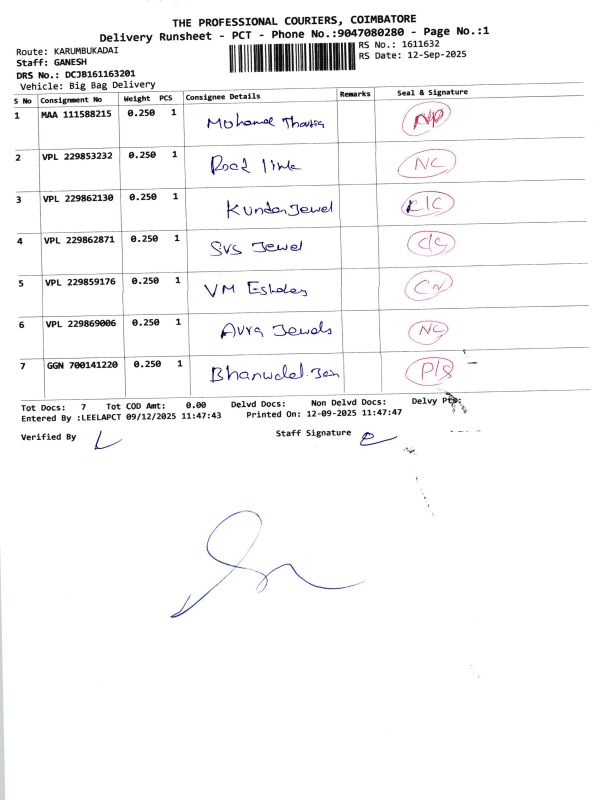 THE PROFESSIONAL COURIERS, COIMBATORE
Delivery Runsheet - PCT - Phone No.:9047080280 - Page No.:1
Route: KARUMBUKADAI
RS No.: 1611632
Staff: GANESH
RS Date: 12-Sep-2025
DRS No.: DCJB161163201
Vehicle: Big Bag Delivery
S No Consignment No Weight PCS Consignee Details Remarks Seal & Signature
1 MAA 111588215 0.250 1 Mohamed
2 VPL 229853232 0.250 1 Road link NC
3 VPL 229862130 0.250 1 Kundan Jewel C/C
4 VPL 229862871 0.250 1 SVS Jewel C/C
5 VPL 229859176 0.250 1 VM CN
6 VPL 229869006 0.250 1 Avra Jewels NC
7 GGN 700141220 0.250 1 Bhanwalal Jain P/S
Tot Docs: 7 Tot COD Amt: 0.00 Delvd Docs: Non Delvd Docs: Delvy Pt
Entered By :LEELAPCT 09/12/2025 11:47:43 Printed On: 12-09-2025 11:47:47
Verified By Staff Signature